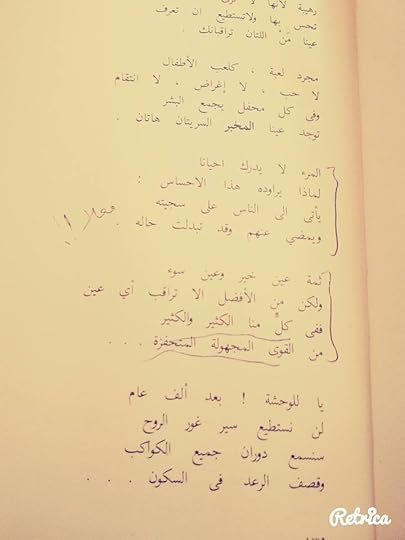 رهيبة لأنها لا ترى
تحس بها ولاتستطيع ان تعرف
عينا مَنْ اللتان تراقبانك .
مجرد لعبة ، كلعب الأطفال
لا حب ، لا إغراض ، لا انتقام
وفى كل محفل يجمع البشر
توجد عينا المخبر السريتان هاتان .
المرء لا يدرك احيانا
لماذا يراوده هذا الاحساس :
يأتى الى الناس على سجيته
ويمضي عنهم وقد تبدلت حاله .
فعلا !!
ثمة عين خير وعين سوء
ولكن من الأفضل الا تراقب أي عين
ففى كلٍّ منا الكثير والكثير
من القوى المجهولة المتحفزة . . .
يا للوحشة ! بعد ألف عام
لن نستطيع سير غور الروح
سنسمع دوران جميع الكواكب
وقصف الرعد فى السكون . . .
Retrica